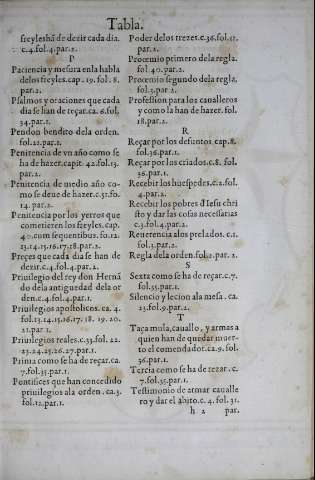 Tabla.
freyleshā de dezir cada dia.
c.4.fol.4.par.2.
P
Paciencia y mesura en la habla
delos freyles.cap.19.fol.8.
par.2.
Psalmos y oraciones que cada
dia se han de reçar.ca.6.fol.
34.par.1.
Pendon bendito dela orden.
fol.21.par.1.
Penitencia de vn año como se
ha de hazer.capit.42.fol.13.
par.2.
Penitencia de medio año co-
mo se deue de hazer.c.51.fo.
14.par.2.
Penitencia por los yerros que
cometieren los freyles.cap.
40.cum sequentibus.fo.12.
13.14.15.16.17.18.par.2.
Preçes que cada dia se han de
dezir.c.4.fol.4.par.2.
Priuilegio del rey don Hernā
do dela antiguedad dela or
den.c.4.fol.4.par.1.
Priuilegios apostolicos.ca.4.
fol.13.14.15.16.17.18.19.20.
21.par.1.
Priuilegios reales.c.33.fol.22.
23.24.25.26.27.par.1.
Prima como se ha de reçar.ca.
7.fol.35.par.1.
Pontifices que han concedido
priuilegios ala orden.ca.3.
fol.12.par.1.
Poder delos trezes.c.36.fol.51.
par.2.
Prooemio primero dela regla.
fol 40.par.2.
Prooemio segundo dela regla.
fol.3.par 2.
Profession para los caualleros
y como la han de hazer.fol.
18.par.2.
R
Reçar por los defuntos.cap.8.
fol.36.par.1.
Reçar por los criados.c.8. fol.
36.par.1.
Recebir los huespedes.c.2.fol.
4.par.2.
Recebir los pobres d Iesu chri
sto y dar las cosas necessarias
c.3.fol.4.par.2.
Reuerencia alos prelados.c.1.
fol.3.par.2.
Regla dela orden.fol.2.par.2.
S
Sexta como se ha de reçar.c.7.
fol.35.par.1.
Silencio y lecion ala mesa.ca.
23.fol.9.par.2.
T
Taça mula,cauallo, y armas a
quien han de quedar muer-
to el comendador.ca.9.fol.
36.par.1.
Tercia como se ha de rezar.c.
7.fol.35.par.1.
Testimonio de armar caualle
ro y dar el abito.c.4.fol.31.
h 2 par.